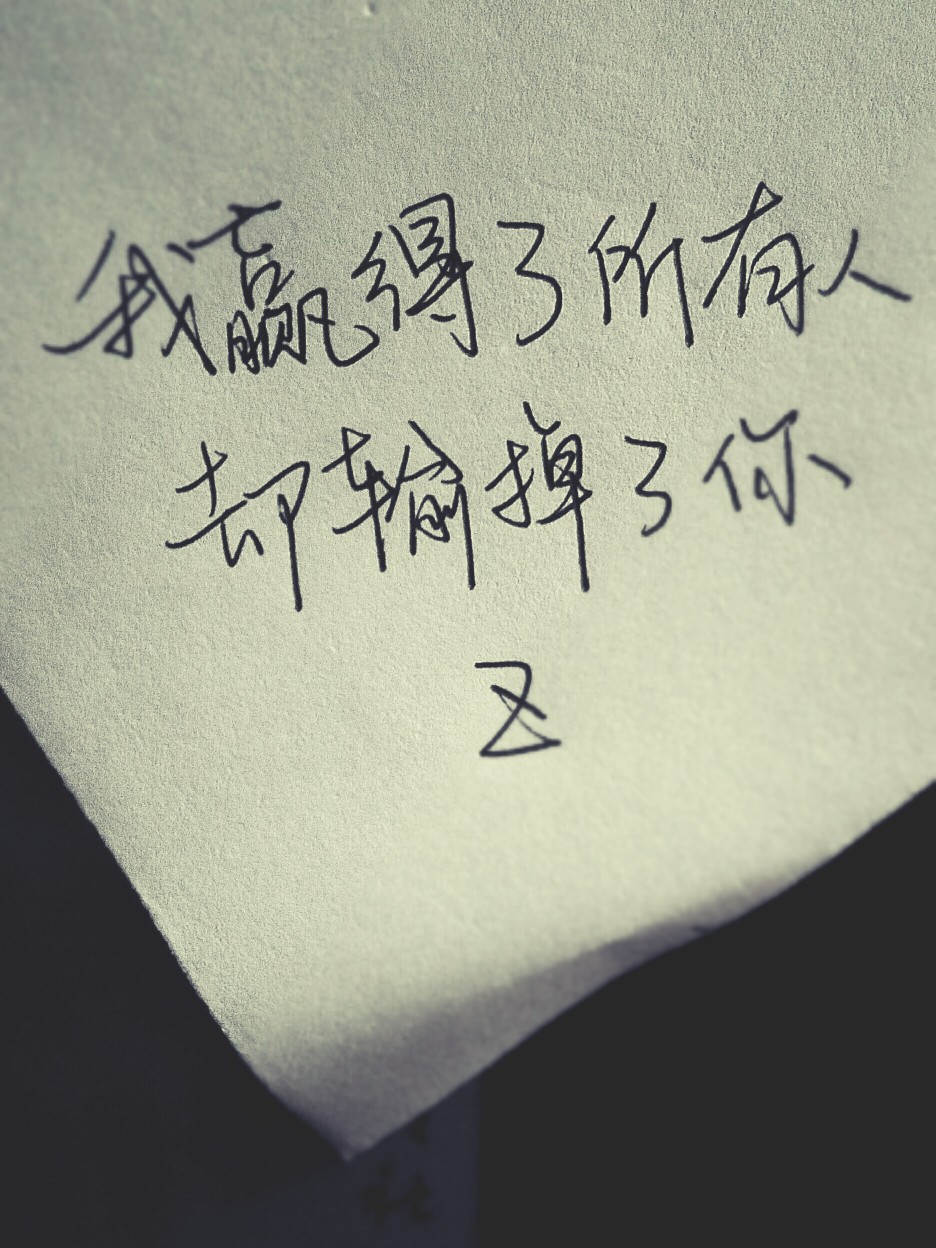 我赢得了所有人
却输掉了你